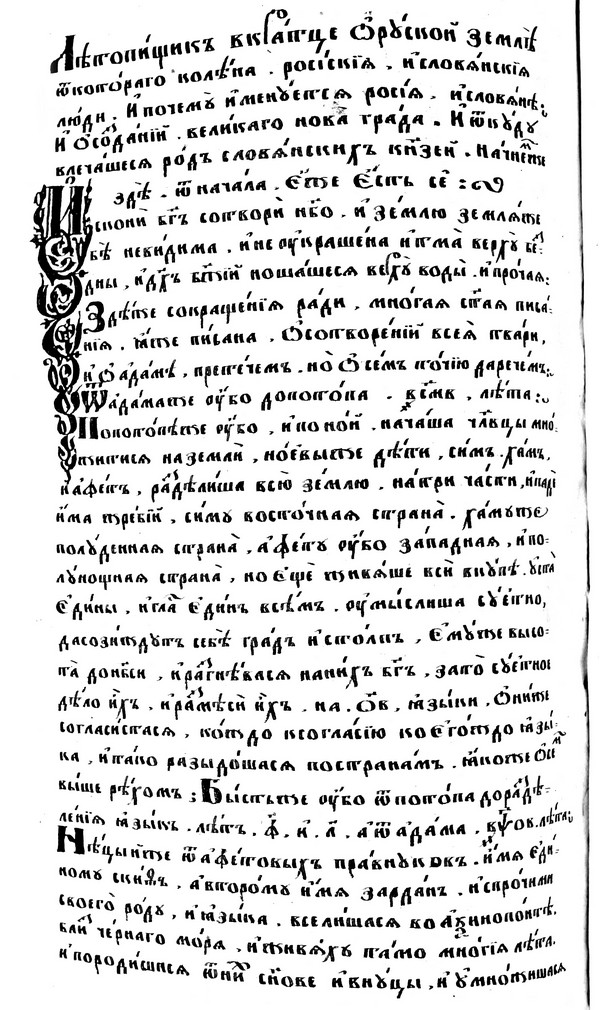 Лѣтопищикъ вкратце Ѿ рускои землѣ
ѿ котораго колѣна . росїскїя , и словянскїя
люди . И почему именуется росїя , и словянѣ .
И ѡ созданїи . великаго нова града . И ѿкуду
влечашеся родъ словянскихъ кн҃зей . начнемже
здѣ . ѿ начала . Єже єсть се :
Искони бг҃ъ сотвори нб҃о . и землю земляже
бѣ невидима . и не ѹкрашена и тма верхȣ без
дны , и дх҃ъ бж҃їи ношашеся верхȣ воды . и прочая :
Здѣже сокращенїя ради , многая ст҃ая писа
нїя . ꙗже писана , Ѡ сотворенїи всея твари ,
и ѡ адамѣ , претечемъ . но ѡ семъ точїю да речемъ :
Ѿ адамаже ѹбо до потопа . в҂см҃в , лѣта :
По потопѣже ѹбо , и по нои . начаша чл҃вцы мно
житися на земли , ноевыже дѣти , симъ . хамъ ,
и афетъ , раздѣлиша всю землю . на три части , и паде
има жребїи , симȣ восточная страна . хамȣже
полуденная страна , афетȣ ѹбо западная , и по
лȣнощная страна , но еще живяше вси вкȣпѣ . ȣста
єдины , и гла єдинъ всѣмъ . ѹмыслиша сȣетно ,
да созиждȣтъ себѣ градъ и столпъ , ємȣже высо
та до нб҃си , и разгнѣвася на нихъ бг҃ъ , за то сȣетное
дѣло ихъ , и размѣси ихъ . на . ѻ҃в , ꙗзыки . Ѡниже
согласистася , кождо ксогласїю коегождо ꙗзы
ка , и тако разыдошася по странамъ . ꙗкоже ѡ семъ
выше рѣхомъ ; Бысть же ѹбо ѿ потопа до раздѣ
ленїя ꙗзыкъ . лѣтъ . ф҃ . и . л҃ . а ѿ адама .
Нѣцыиже ѿ афетовыхъ правнȣкѡвъ . имя еди
номȣ скиѳъ , а второмȣ имя зарданъ . и спрочими
своего родȣ , и ꙗзыка . вселишася во ахинопонтѣ .
близ чернаго моря , и живяхȣ тамо многїя лѣта .
и породишися ѿ них сн҃ове и внȣцы , и ȣмножишася